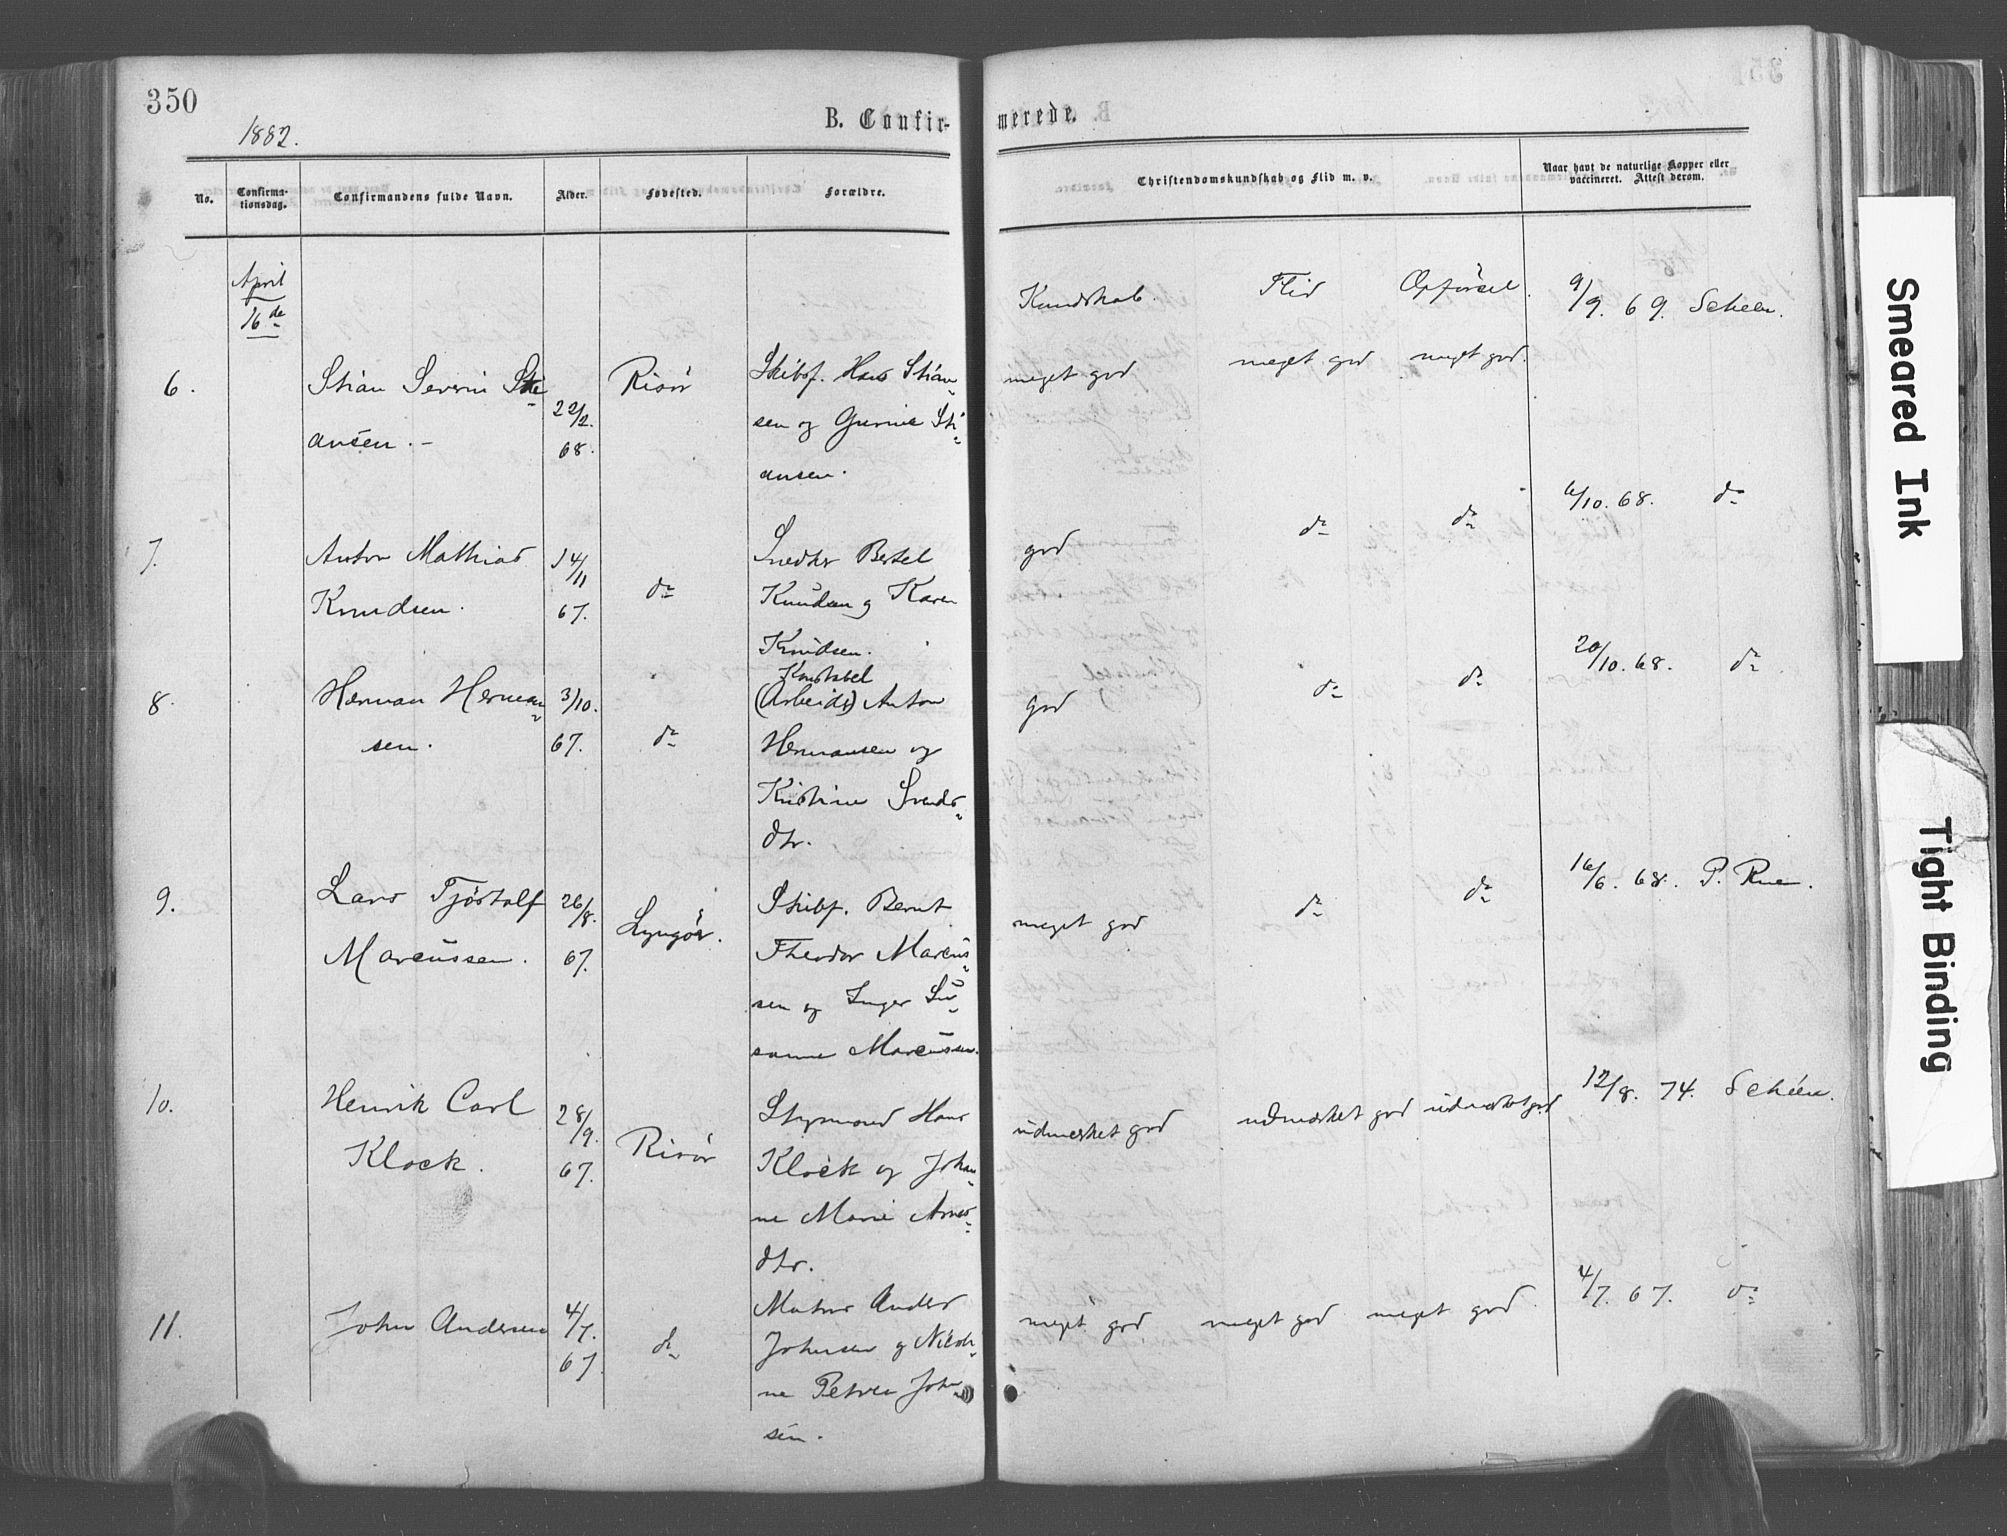 350
1882.
B. Confir-
merede.
No.
Confirma-
tionsdag.
Confirmandens fulde Navn.
Alder.
Fødested.
Forældre.
Christendomskundskab og Flid m. v.
Naar havt de naturlige Kopper eller
vaccineret. Attest derom.
April
16de
Kundskab. Flid Opførsel.
6. Stian Severin Sti
ansen. -
22/2.
68.
Risør
Skibsf. Hans Stian
sen og Gurine Sti
ansen.
meget god meget god meget god.
9/9. 69. Scheen.
7. Anton Mathias
Knudsen.
14/11
67.
do
Snedker Bertel
Knudsen og Karen
Knudsen.
god do do 6/10. 68. do
8. Herman Herman
sen.
3/10.
67.
do
Konstabel
(Arbeids) Anton
Hermansen og
Kristine Svends
dtr.
god do do 20/10. 68. do
9. Lars Tjøstolf
Marcussen.
26/8.
67.
Lyngør.
Skibsf. Bernt
Theodor Marcus
sen og Inger Su
sanne Marcussen.
meget god do do 16/6. 68. P. Rue.
10. Henrik Carl
Klock.
28/9.
67.
Risør
Styrmand Hans
Klock og Johan
ne Marie Arnes
dtr.
udmærket god udmærket god udmærket god 12/8. 74. Schéen.
11. John Andersen
4/7.
67
do
Matros Anders
Johnsen og Nicoli
ne Petrea John
sen.
meget god meget god meget god. 4/7. 67. do
Smeared Ink
Tight Binding